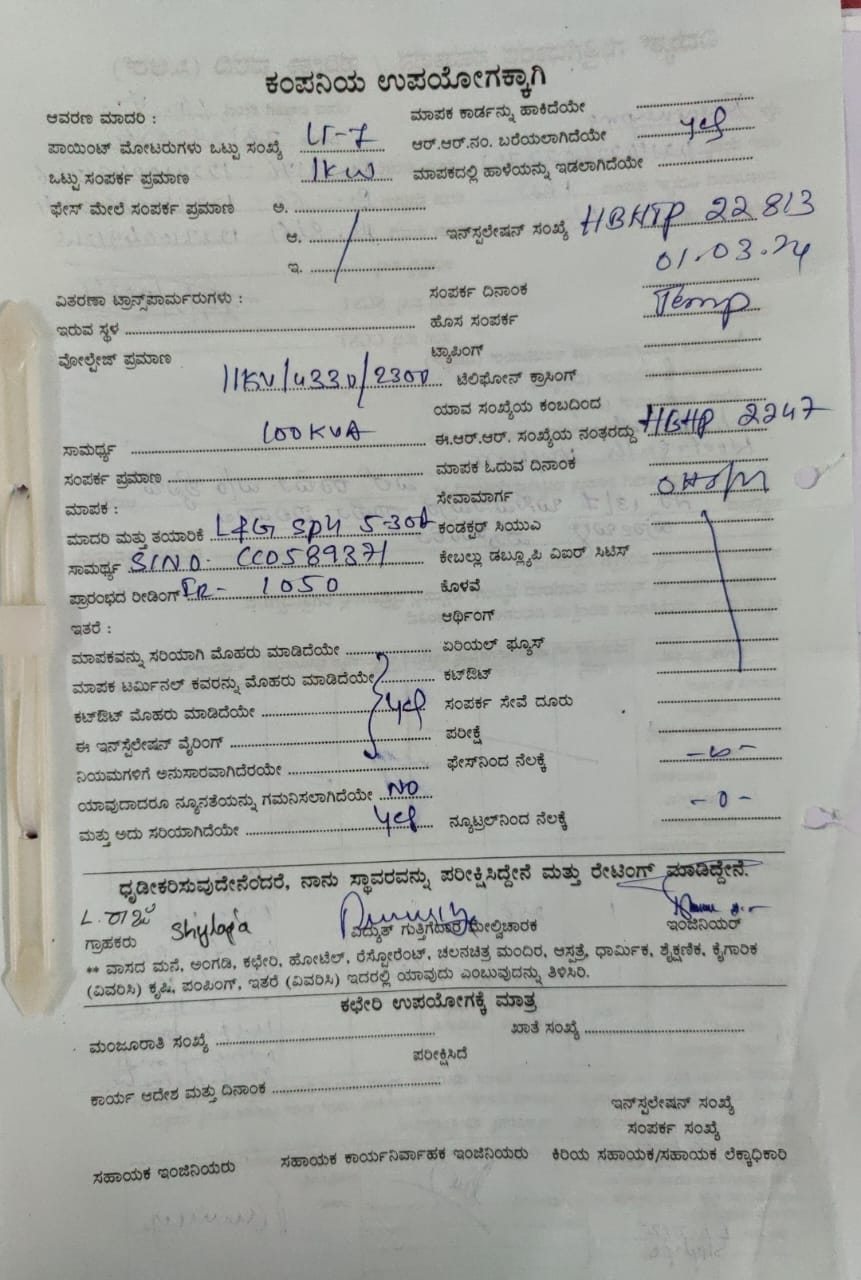 ಕಂಪನಿಯ ಉಪಯೋಗಕ್ಕಾಗಿ
ಆವರಣ ಮಾದರಿ : ಮಾಪಕ ಕಾರ್ಡನ್ನು ಹಾಕಿದೆಯೇ
ಪಾಯಿಂಟ್ ಮೋಟರುಗಳು ಒಟ್ಟು ಸಂಖ್ಯೆ LT-7 ಆರ್.ಆರ್.ನಂ. ಬರೆಯಲಾಗಿದೆಯೇ yes
ಒಟ್ಟು ಸಂಪರ್ಕ ಪ್ರಮಾಣ 1KW ಮಾಪಕದಲ್ಲಿ ಹಾಳೆಯನ್ನು ಇಡಲಾಗಿದೆಯೇ
ಫೇಸ್ ಮೇಲೆ ಸಂಪರ್ಕ ಪ್ರಮಾಣ ಅ.
ಆ. ಇನ್‌ಸ್ಪಲೇಷನ್ ಸಂಖ್ಯೆ HBHTP 22813
ಇ. 01.03.24
ವಿತರಣಾ ಟ್ರಾನ್ಸ್‌ಪಾರ್ಮರುಗಳು : ಸಂಪರ್ಕ ದಿನಾಂಕ
ಇರುವ ಸ್ಥಳ ಹೊಸ ಸಂಪರ್ಕ Temp
ವೋಲ್ಟೇಜ್ ಪ್ರಮಾಣ ಟ್ಯಾಪಿಂಗ್
11KV/433V/230V ಟೆಲಿಫೋನ್ ಕ್ರಾಸಿಂಗ್
ಯಾವ ಸಂಖ್ಯೆಯ ಕಂಬದಿಂದ
ಸಾಮರ್ಥ್ಯ 100KVA ಈ.ಆರ್.ಆರ್. ಸಂಖ್ಯೆಯ ನಂತರದ್ದು HBHP 2247
ಸಂಪರ್ಕ ಪ್ರಮಾಣ ಮಾಪಕ ಓದುವ ದಿನಾಂಕ
ಮಾಪಕ : ಸೇವಾಮಾರ್ಗ
ಮಾದರಿ ಮತ್ತು ತಯಾರಿಕೆ L&G 5-30A ಕಂಡಕ್ಟರ್ ಸಿಯುವಿ
ಸಾಮರ್ಥ್ಯ Sl NO- CC0589371 ಕೇಬಲ್ಲು ಡಬ್ಲ್ಯೂಪಿ ವಿಐರ್ ಸಿಟಿಸ್
ಪ್ರಾರಂಭದ ರೀಡಿಂಗ್ 1050 ಕೊಳವೆ
ಇತರೆ : ಆರ್ಥಿಂಗ್
ಮಾಪಕವನ್ನು ಸರಿಯಾಗಿ ಮೊಹರು ಮಾಡಿದೆಯೇ ಏರಿಯಲ್ ಫ್ಯೂಸ್
ಮಾಪಕ ಟರ್ಮಿನಲ್ ಕವರನ್ನು ಮೊಹರು ಮಾಡಿದೆಯೇ ಕಟ್‌ಔಟ್
ಕಟ್‌ಔಟ್ ಮೊಹರು ಮಾಡಿದೆಯೇ yes ಸಂಪರ್ಕ ಸೇವೆ ದೂರು
ಈ ಇನ್‌ಸ್ಪೆಲೇಷನ್ ವೈರಿಂಗ್ ಪರೀಕ್ಷೆ
ನಿಯಮಗಳಿಗೆ ಅನುಸಾರವಾಗಿದೆರಯೇ ಫೇಸ್‌ನಿಂದ ನೆಲಕ್ಕೆ
ಯಾವುದಾದರೂ ನ್ಯೂನತೆಯನ್ನು ಗಮನಿಸಲಾಗಿದೆಯೇ NO -0-
ಮತ್ತು ಅದು ಸರಿಯಾಗಿದೆಯೇ yes ನ್ಯೂಟ್ರಲ್‌ನಿಂದ ನೆಲಕ್ಕೆ
ಧೃಡೀಕರಿಸುವುದೇನೆಂದರೆ, ನಾನು ಸ್ಥಾವರವನ್ನು ಪರೀಕ್ಷಿಸಿದ್ದೇನೆ ಮತ್ತು ರೇಟಿಂಗ್ ಮಾಡಿದ್ದೇನೆ.
ಗ್ರಾಹಕರು ವಿದ್ಯುತ್ ಗುತ್ತಿಗೆದಾರ ಮೇಲ್ವಿಚಾರಕ ಇಂಜಿನಿಯರ್
** ವಾಸದ ಮನೆ, ಅಂಗಡಿ, ಕಛೇರಿ, ಹೋಟೆಲ್, ರೆಸ್ಟೋರೆಂಟ್, ಚಲನಚಿತ್ರ ಮಂದಿರ, ಆಸ್ಪತ್ರೆ, ಧಾರ್ಮಿಕ, ಶೈಕ್ಷಣಿಕ, ಕೈಗಾರಿಕ
(ವಿವರಿಸಿ) ಕೃಷಿ, ಪಂಪಿಂಗ್, ಇತರೆ (ವಿವರಿಸಿ) ಇದರಲ್ಲಿ ಯಾವುದು ಎಂಬುವುದನ್ನು ತಿಳಿಸಿರಿ.
ಕಛೇರಿ ಉಪಯೋಗಕ್ಕೆ ಮಾತ್ರ
ಮಂಜೂರಾತಿ ಸಂಖ್ಯೆ ಖಾತೆ ಸಂಖ್ಯೆ
ಪರೀಕ್ಷಿಸಿದೆ
ಕಾರ್ಯ ಆದೇಶ ಮತ್ತು ದಿನಾಂಕ
ಇನ್‌ಸ್ಪಲೇಷನ್ ಸಂಖ್ಯೆ
ಸಂಪರ್ಕ ಸಂಖ್ಯೆ
ಸಹಾಯಕ ಇಂಜಿನಿಯರು ಸಹಾಯಕ ಕಾರ್ಯನಿರ್ವಾಹಕ ಇಂಜಿನಿಯರು ಕಿರಿಯ ಸಹಾಯಕ/ಸಹಾಯಕ ಲೆಕ್ಕಾಧಿಕಾರಿ